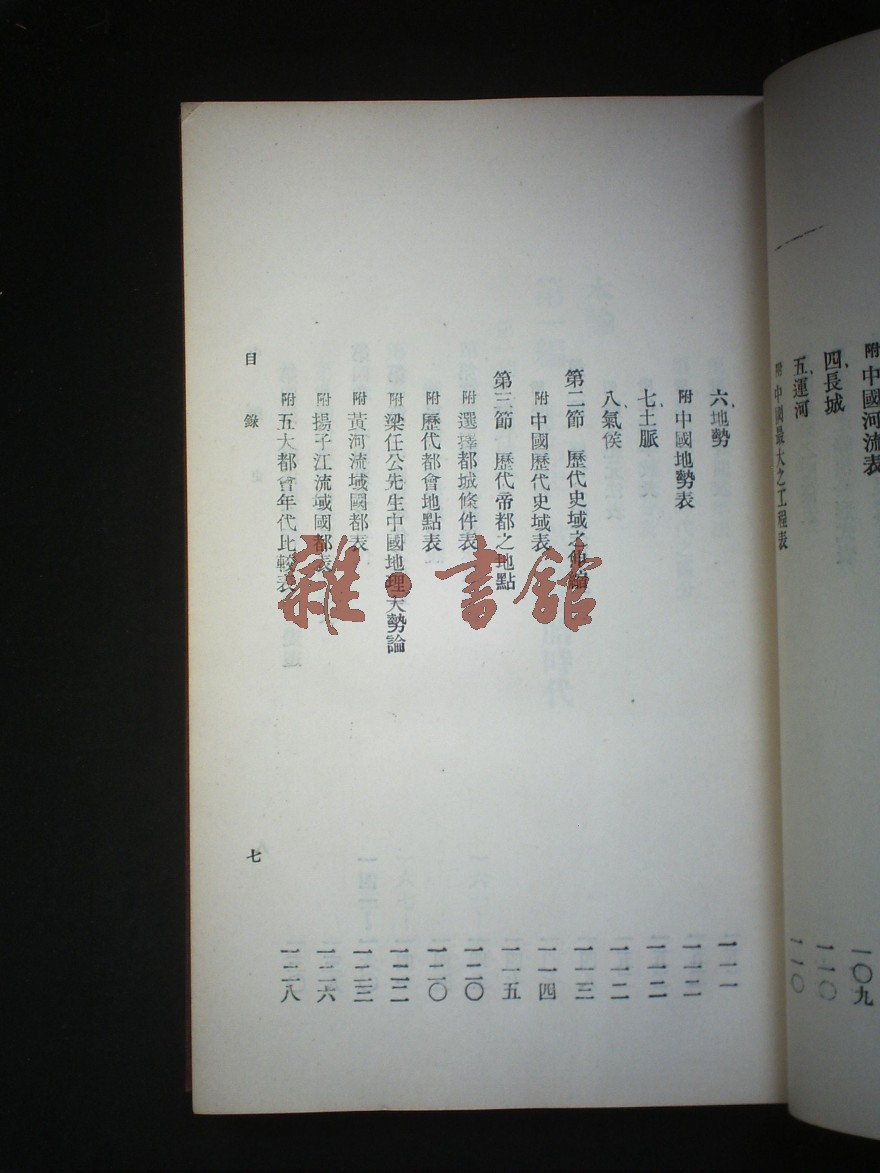 附 中國河流表 一〇九
四、長城 一一〇
五、運河 一一〇
附 中國最大之工程表
六、地勢 一一一
附 中國地勢表 一一二
七、土脈 一一二
八、氣候 一一二
第二節 歷代史域之伸縮 一一三
附 中國歷代史域表 一一四
第三節 歷代帝都之地點 一一五
附 選擇都城條件表 一二〇
附 歷代都會地點表 一二〇
附 梁任公先生中國地理大勢論 一二二
附 黃河流域國都表 一二三
附 揚子江流域國都表 一二六
附 五大都會年代比較表 一二八
目錄 七
雜·書館